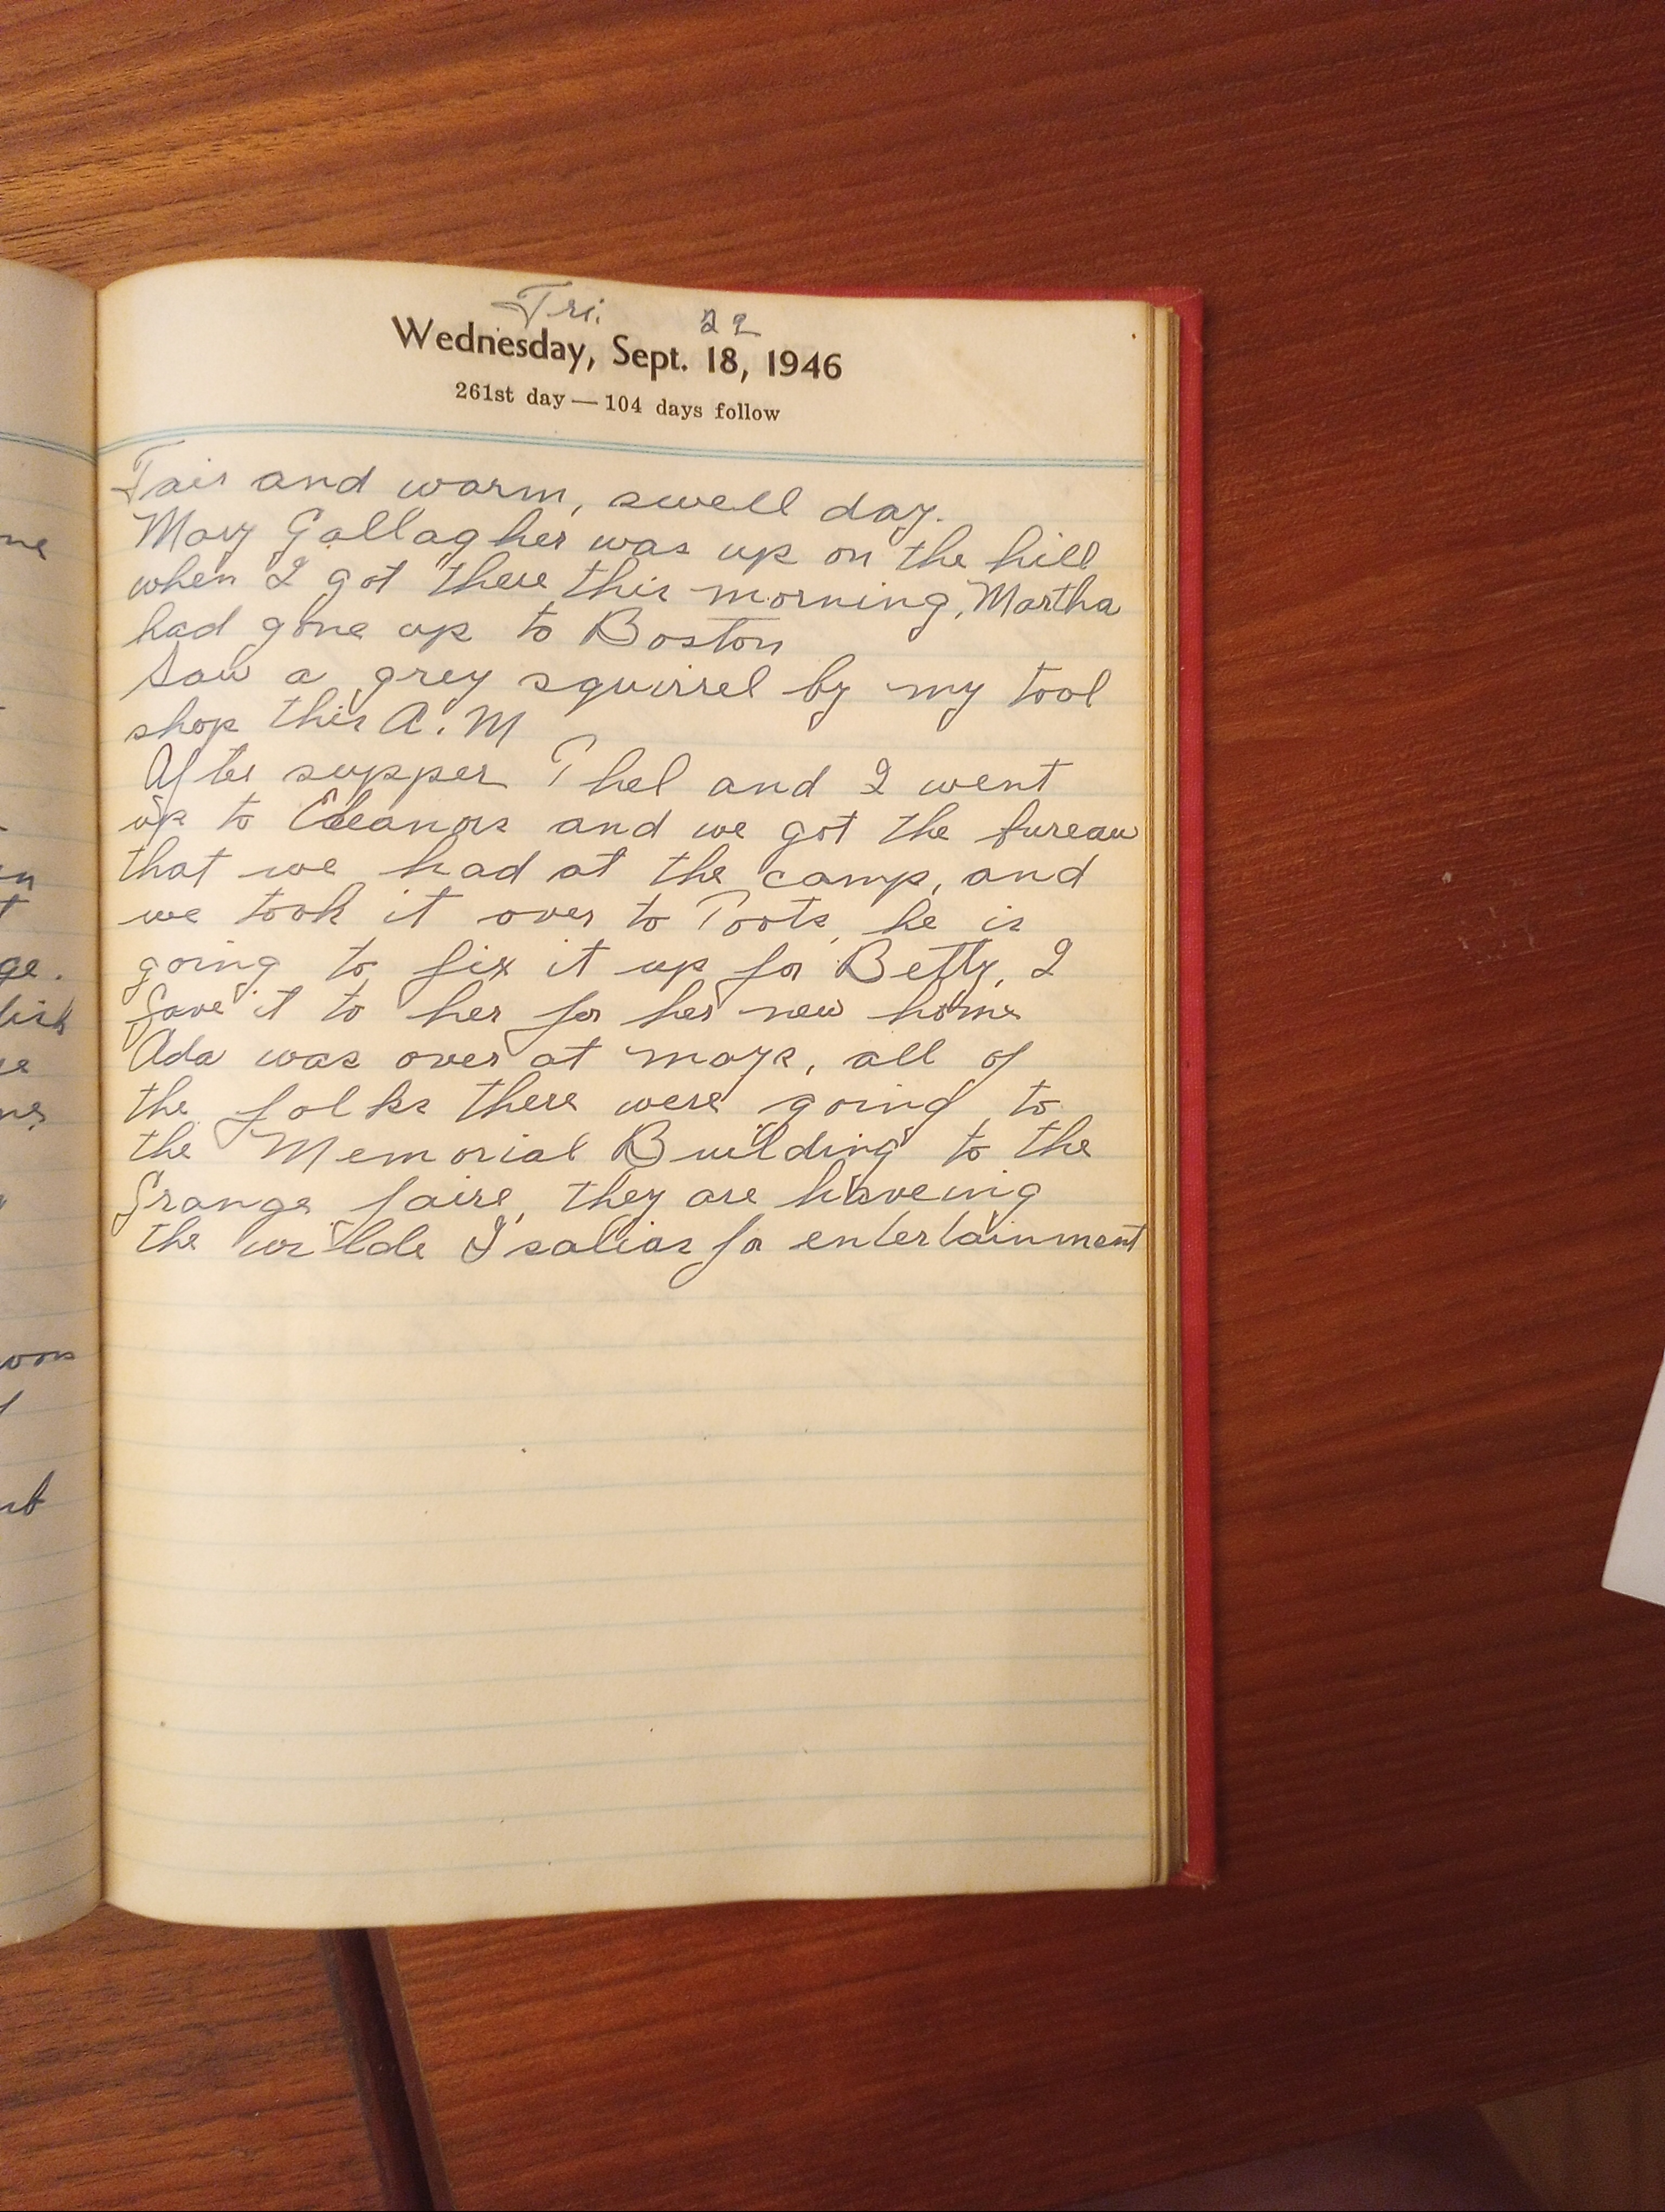 Fri. 22
Wednesday, Sept. 18, 1946
261st day — 104 days follow
Fair and warm, swell day.
Mary Gallagher was up on the hill
when I got there this morning, Martha
had gone up to Boston
Saw a grey squirrel by my tool
shop this A.M
After supper Thel and I went
up to Eleanors and we got the bureau
that we had at the camp, and
we took it over to Toots, he is
going to fix it up for Betty, I
gave it to her for her new home
Ada was over at mays, all of
the folks there were going to
the Memorial Building to the
Grange faire, they are haveing
the for entertainment